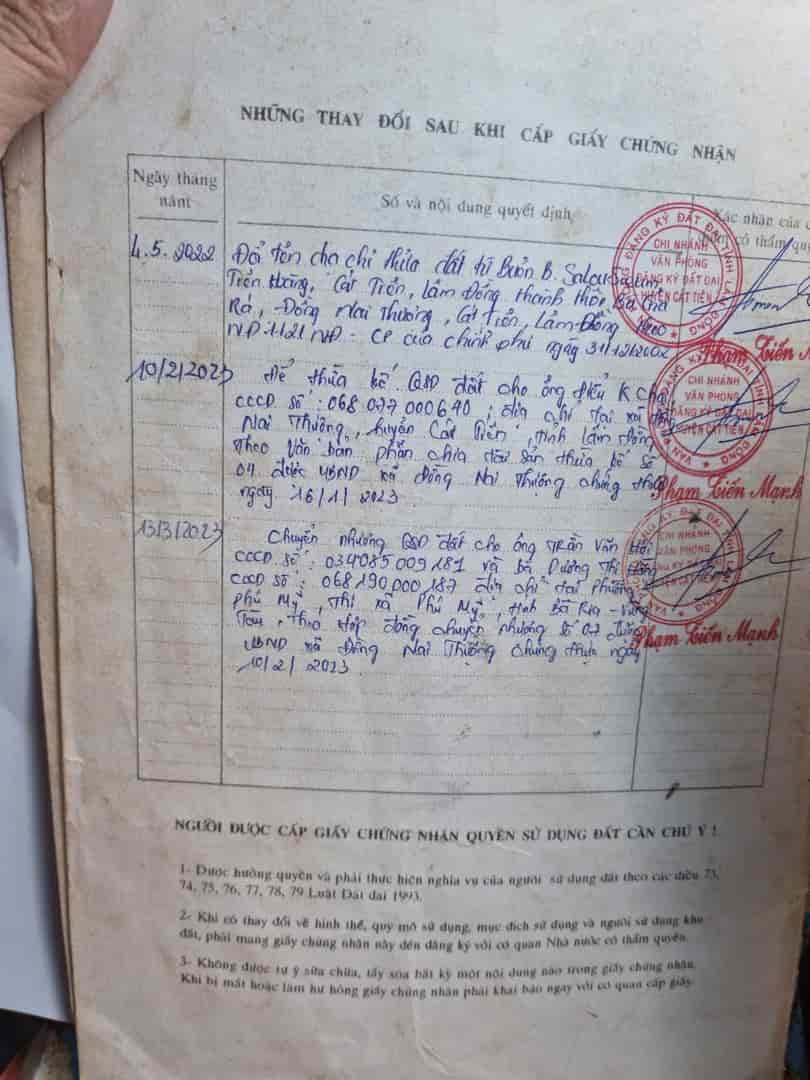 NHỮNG THAY ĐỔI SAU KHI CẤP GIẤY CHỨNG NHẬN
Ngày tháng năm
Số và nội dung quyết định
Xác nhận của
có thẩm quy
4.5.2022
Đổi tên địa chỉ thửa đất từ Buôn B.
Tiên Hoàng, Cát Tiên, Lâm Đồng thành thôn
Rá, Đồng Nai Thượng, Cát Tiên, Lâm Đồng theo
NĐ: 1121 NĐ - CP của chính phủ ngày
10/2/2023
Để thừa kế QSD đất cho ông Điểu K
CCCD số: 068077000640; địa chỉ tại xã
Nai Thượng, huyện Cát Tiên, tỉnh Lâm Đồng
Theo Văn bản phân chia di sản thừa kế số
04 được UBND xã Đồng Nai Thượng chứng thực
ngày 16/1/2023.
13/3/2023
Chuyển nhượng QSD đất cho ông Trần Văn
CCCD số: 034085009181 và bà Dương Thị
CCCD số: 068190000187 địa chỉ tại Phường
Phú Mỹ, Thị xã Phú Mỹ, tỉnh Bà Rịa - Vũng
Tàu, theo Hợp đồng chuyển nhượng số 07 được
UBND xã Đồng Nai Thượng chứng thực ngày
10/2/2023.
CHI NHÁNH
VĂN PHÒNG
ĐĂNG KÝ ĐẤT ĐAI
HUYỆN CÁT TIÊN
Phạm Tiến M
CHI NHÁNH
VĂN PHÒNG
ĐĂNG KÝ ĐẤT ĐAI
HUYỆN CÁT TIÊN
Phạm Tiến Mạnh
CHI NHÁNH
VĂN PHÒNG
ĐĂNG KÝ ĐẤT ĐAI
Phạm Tiến Mạnh
NGƯỜI ĐƯỢC CẤP GIẤY CHỨNG NHẬN QUYỀN SỬ DỤNG ĐẤT CẦN CHÚ Ý !
1- Được hưởng quyền và phải thực hiện nghĩa vụ của người sử dụng đất theo các điều 73,
74, 75, 76, 77, 78, 79 Luật Đất đai 1993.
2- Khi có thay đổi về hình thể, quy mô sử dụng, mục đích sử dụng và người sử dụng khu
đất, phải mang giấy chứng nhận này đến đăng ký với cơ quan Nhà nước có thẩm quyền.
3- Không được tự ý sửa chữa, tẩy xóa bất kỳ một nội dung nào trong giấy chứng nhận.
Khi bị mất hoặc làm hư hỏng giấy chứng nhận phải khai báo ngay với cơ quan cấp giấy.